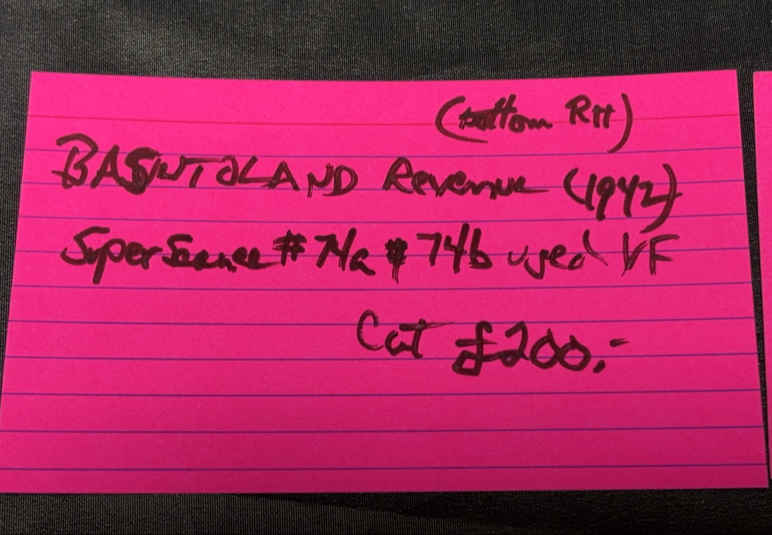 (bottom Rtt)
BASUTOLAND Revenue (1942)
Super Scarce # 74a & 74b used VF
Cat £200.-